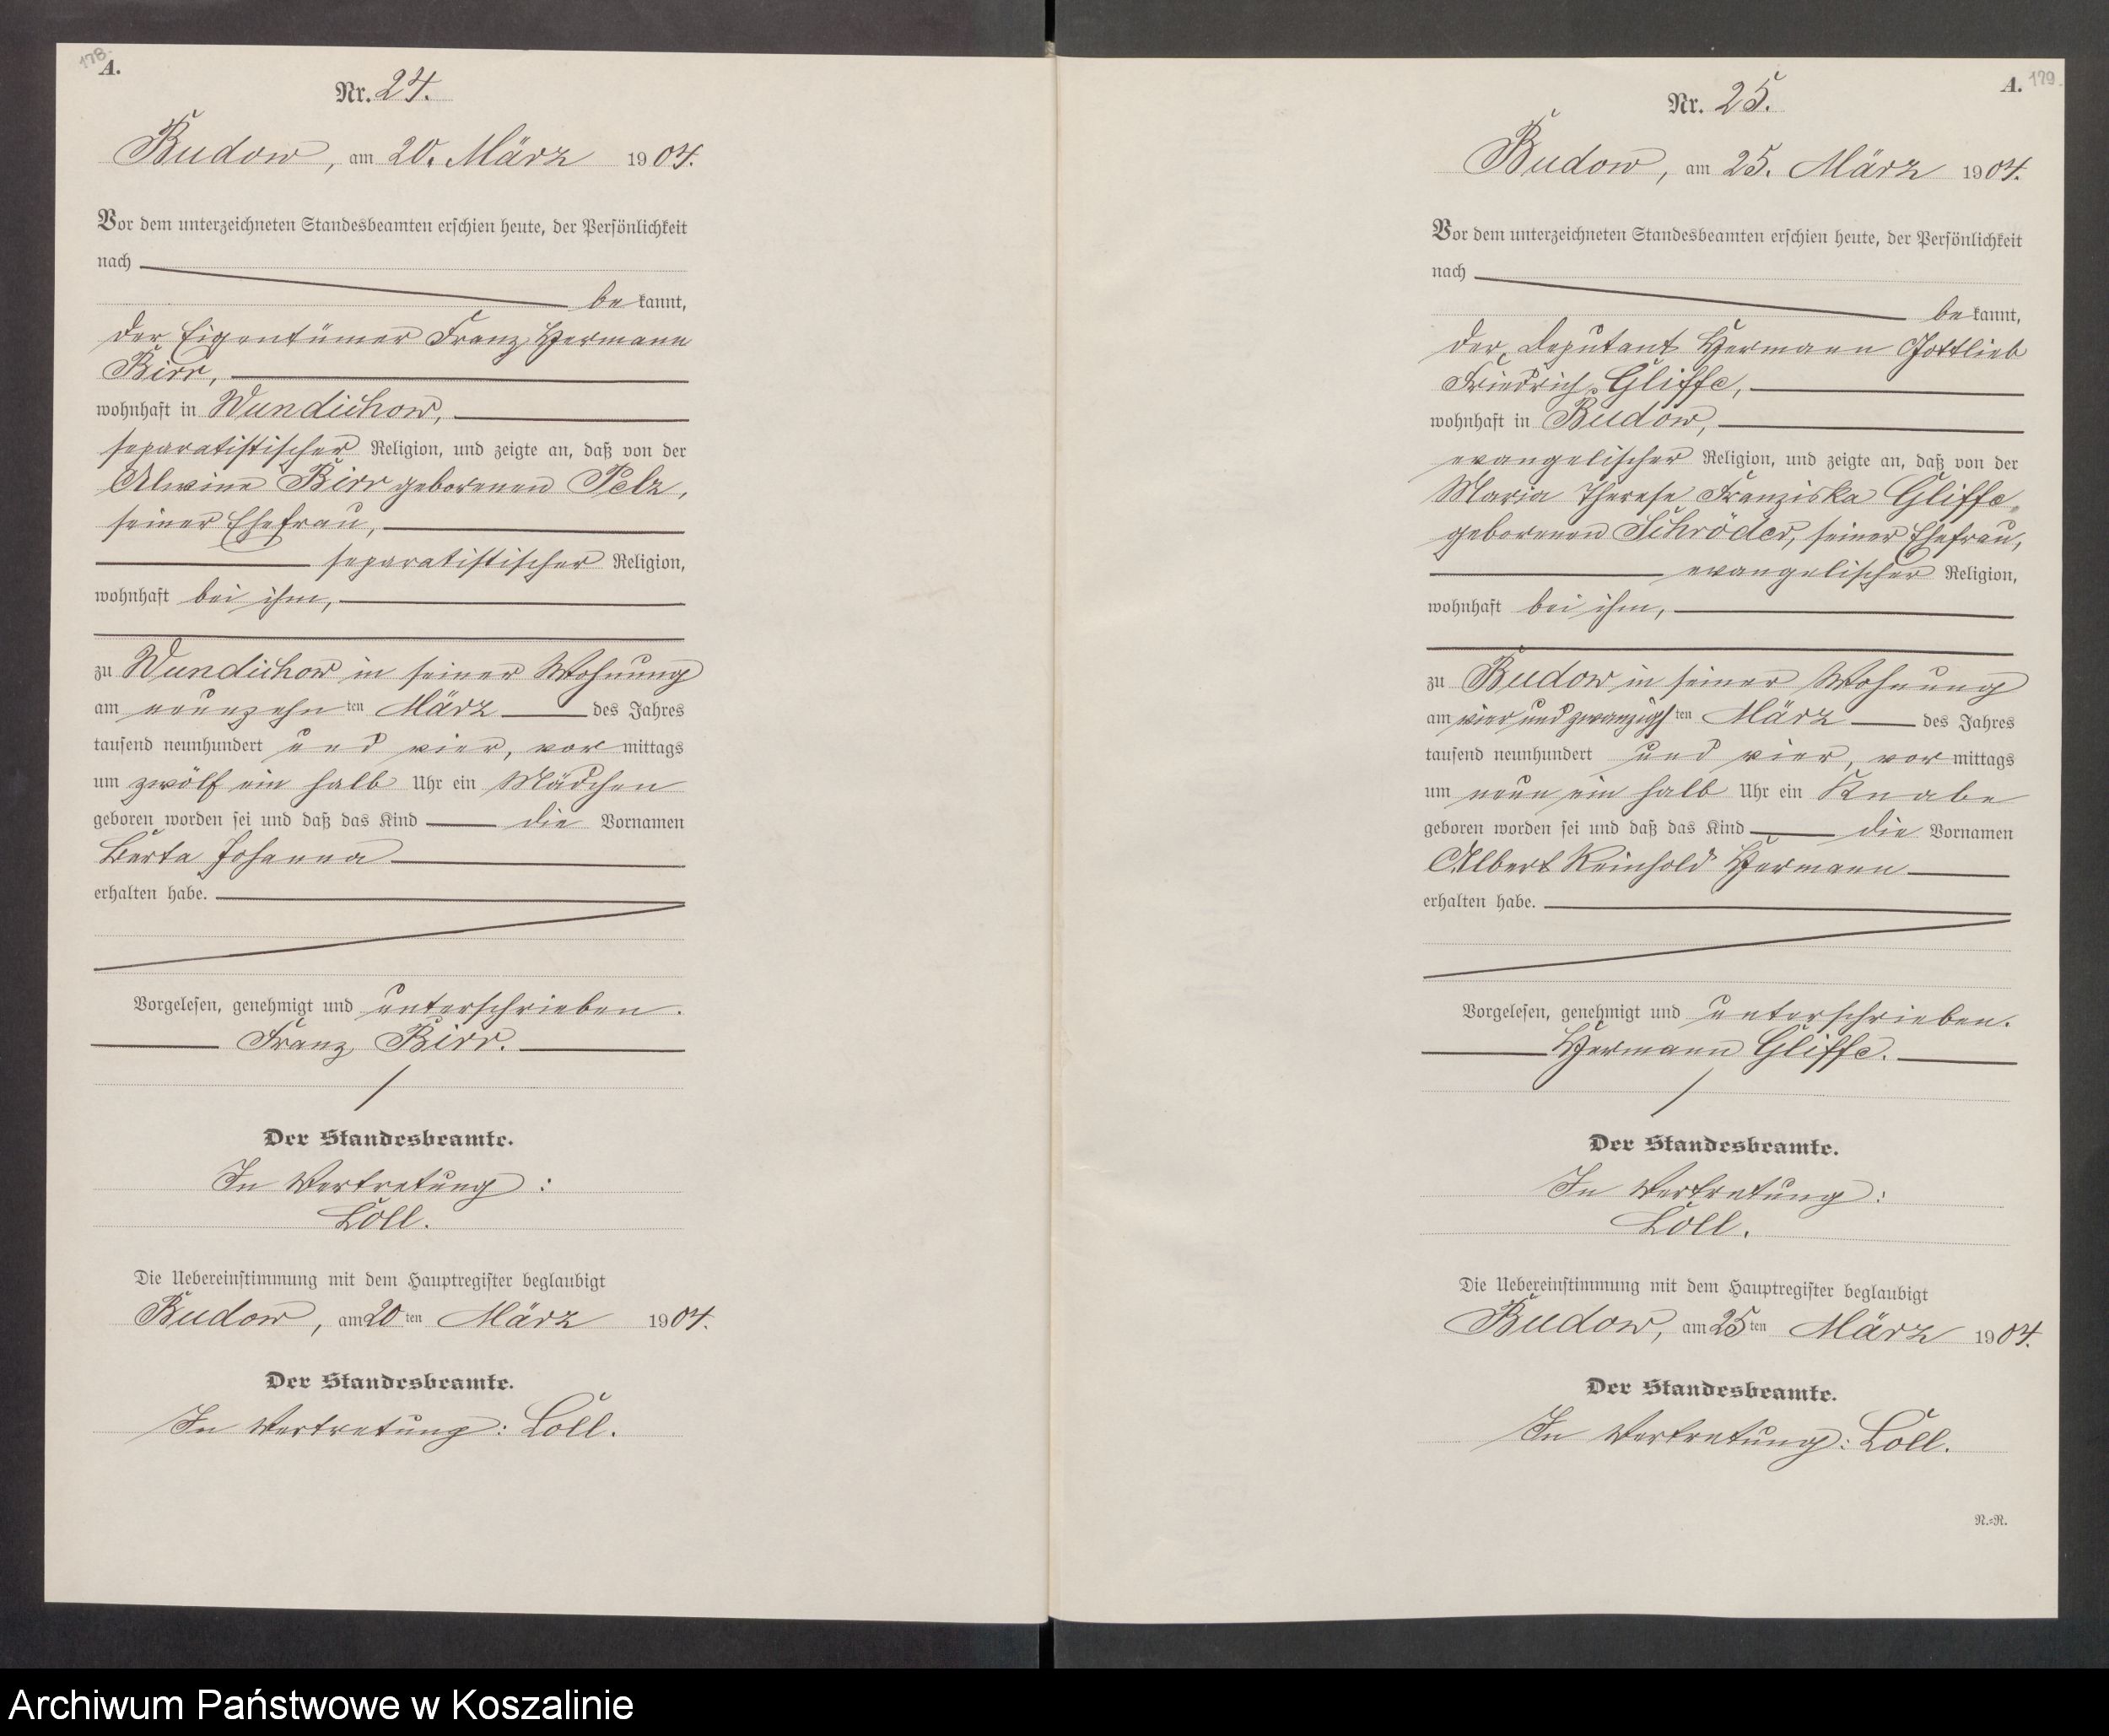 178.
A.
Nr. 24.
Budow, am 20. März 1904.
Vor dem unterzeichneten Standesbeamten erschien heute, der Persönlichkeit
nach
bekannt,
der Eigentümer Franz Hermann
Birr,
wohnhaft in Wundichow,
separatistischer Religion, und zeigte an, daß von der
Alwine Birr geborenen Pelz,
seiner Ehefrau,
separatistischer Religion,
wohnhaft bei ihm,
zu Wundichow in seiner Wohnung
am neunzehnten März des Jahres
tausend neunhundert und vier, vormittags
um zwölf ein halb Uhr ein Mädchen
geboren worden sei und daß das Kind die Vornamen
Berta Johanna
erhalten habe.
Vorgelesen, genehmigt und unterschrieben.
Franz Birr.
Der Standesbeamte.
In Vertretung:
Löll.
Die Uebereinstimmung mit dem Hauptregister beglaubigt
Budow, am 20ten März 1904.
Der Standesbeamte.
In Vertretung: Löll.
A. 179.
Nr. 25.
Budow, am 25. März 1904.
Vor dem unterzeichneten Standesbeamten erschien heute, der Persönlichkeit
nach
bekannt,
der Deputant Hermann Gottlieb
Friedrich Gliffe,
wohnhaft in Budow,
evangelischer Religion, und zeigte an, daß von der
Maria Therese Franziska Gliffe
geborenen Schröder, seiner Ehefrau,
evangelischer Religion,
wohnhaft bei ihm,
zu Budow in seiner Wohnung
am vier und zwanzigsten März des Jahres
tausend neunhundert und vier, vormittags
um neun ein halb Uhr ein Knabe
geboren worden sei und daß das Kind die Vornamen
Albert Reinhold Hermann
erhalten habe.
Vorgelesen, genehmigt und unterschrieben.
Hermann Gliffe.
Der Standesbeamte.
In Vertretung:
Löll.
Die Uebereinstimmung mit dem Hauptregister beglaubigt
Budow, am 25ten März 1904.
Der Standesbeamte.
In Vertretung: Löll.
N.=N.
Archiwum Państwowe w Koszalinie